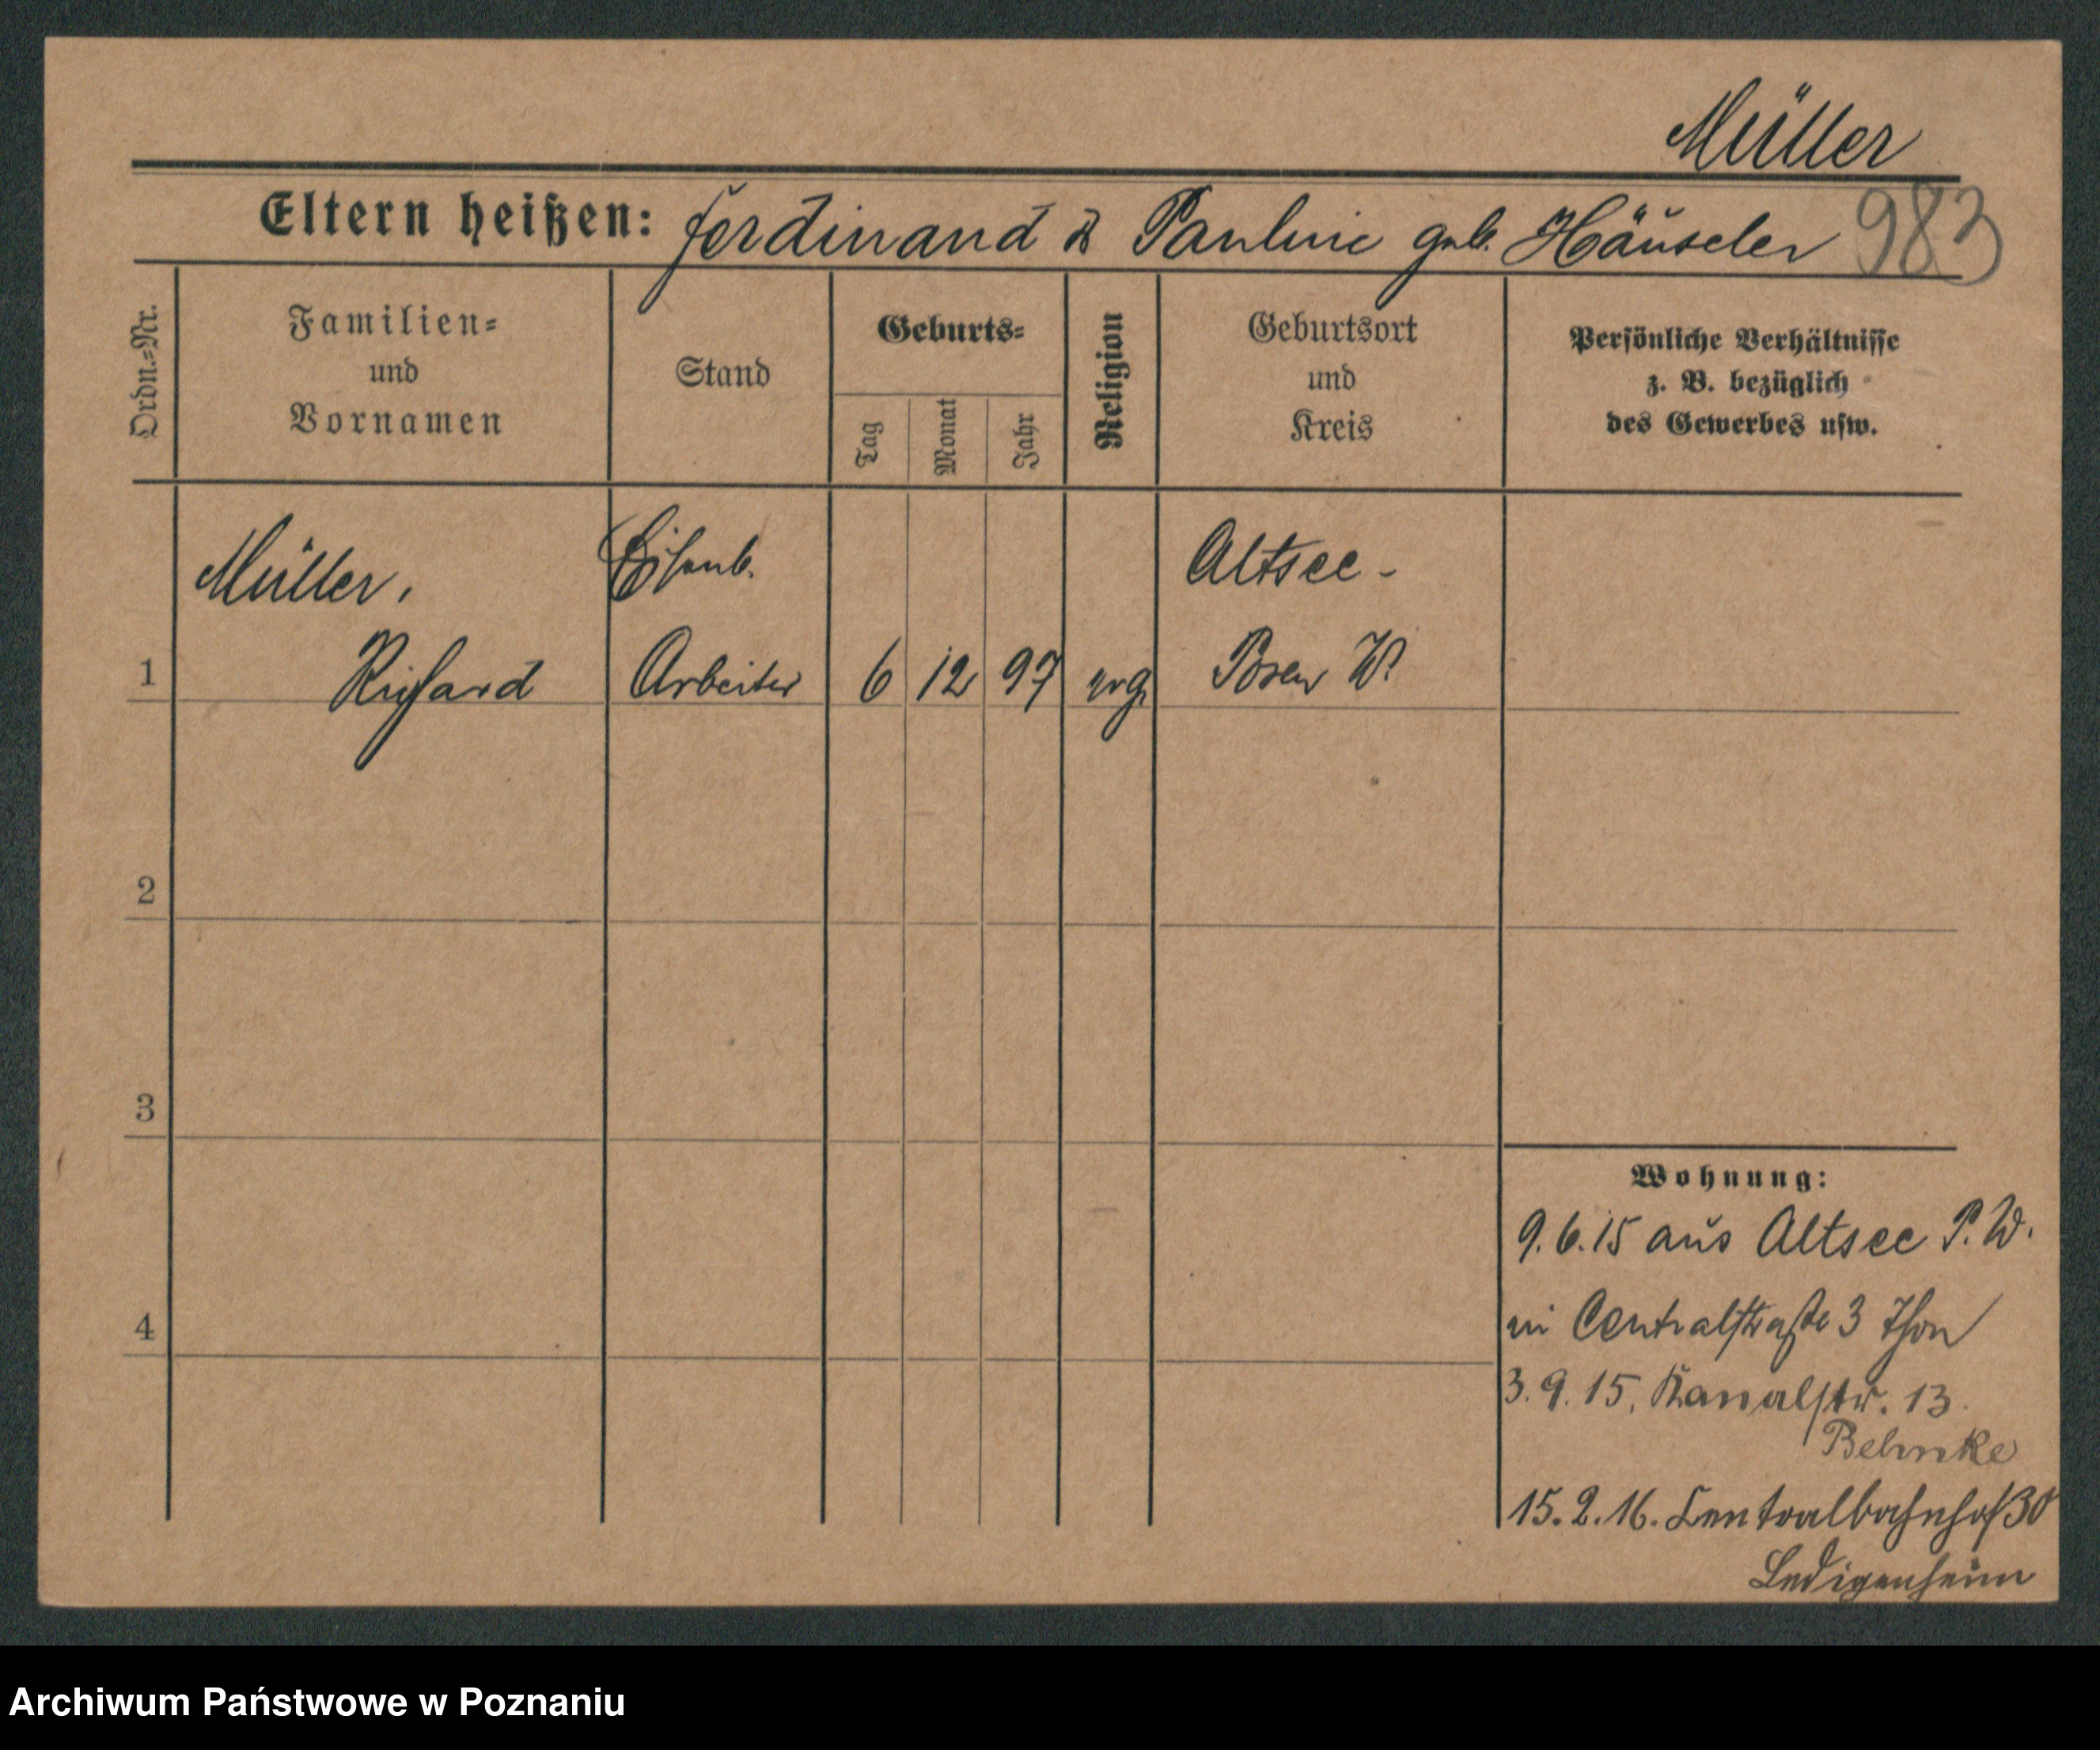 Müller
Eltern heißen: Ferdinand & Pauline geb. Häuseler 983
Ordn.=Nr.
Familien=
und
Vornamen
Stand
Geburts=
Tag
Monat
Jahr
Religion
Geburtsort
und
Kreis
Persönliche Verhältnisse
z. B. bezüglich
des Gewerbes usw.
Müller, Eisenb. Altsee -
1 Richard Arbeiter 6 12 97 evg. Posen W.
2
3
4
Wohnung:
9.6.15 aus Altsee P.W.
in Centralstraße 3
3.9.15, Kanalstr. 13
Behnke
15.2.16. Centralbahnhof 30
Ledigenheim
Archiwum Państwowe w Poznaniu